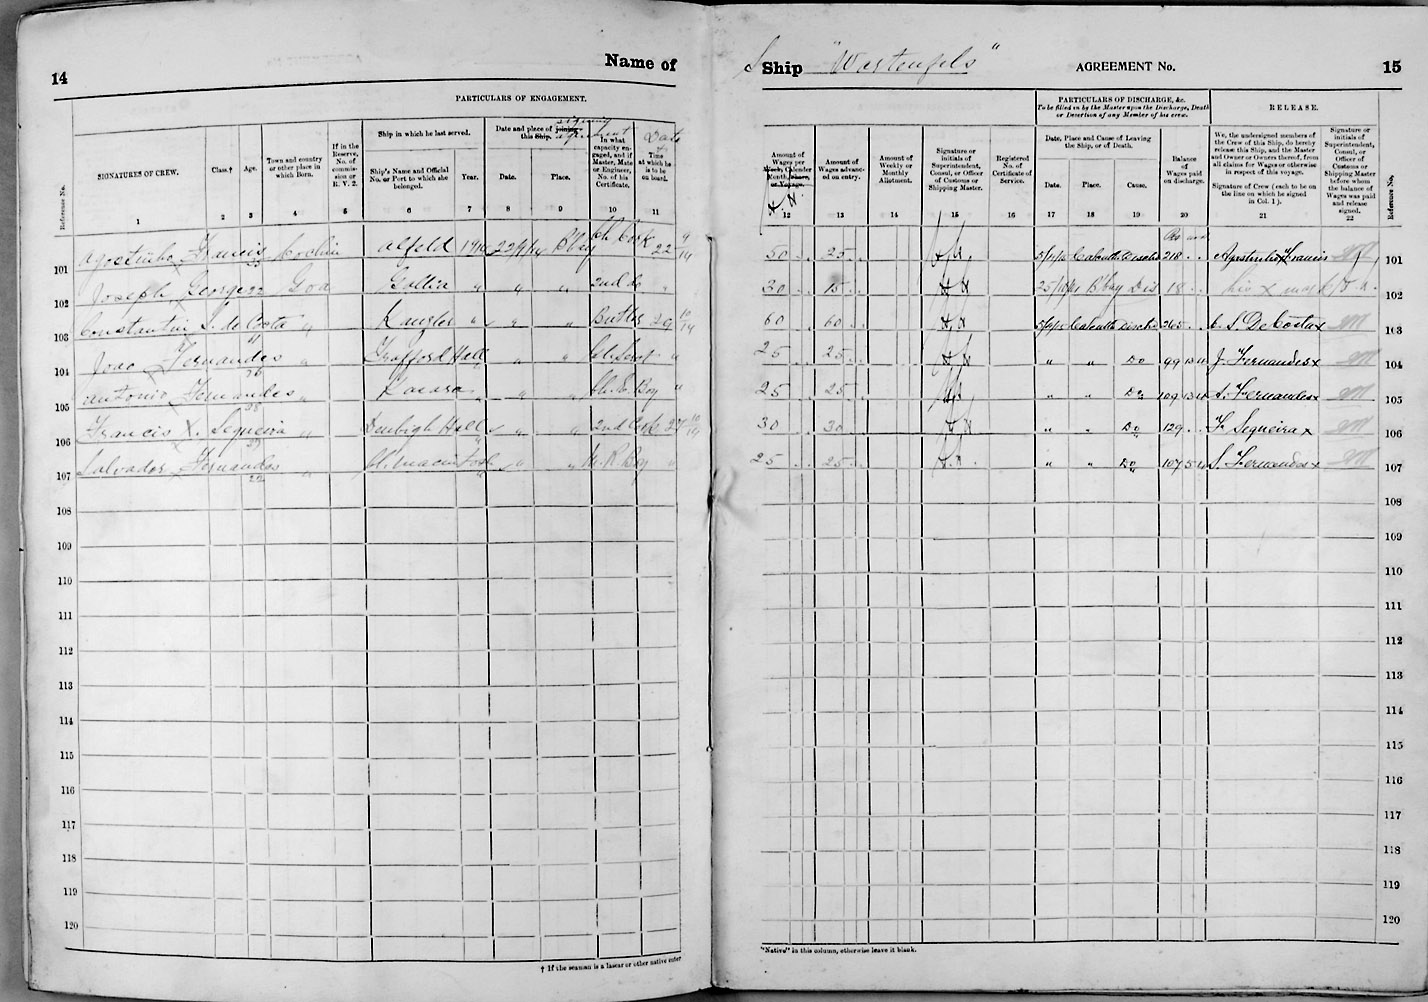 14
Name of
PARTICULARS OF ENGAGEMENT.
Reference No.
SIGNATURES OF CREW.
Class.†
Age.
Town and country or other place in which Born.
If in the Reserve, No. of commission or R. V. 2.
Ship in which he last served.
Ship's Name and Official No. or Port to which she belonged.
Year.
Date and place of joining this Ship.
signing agreement
Date.
Place.
In what capacity engaged, and if Master, Mate or Engineer, No. of his Certificate.
Date
Time at which he is to be on board.
1 2 3 4 5 6 7 8 9 10 11
101 Agostinho Francis Cochin Alfeld 1914 22/9/14 B'bay Ch. Cook 22 9/14
102 Joseph George Goa " " " 2nd do "
103 Constantin S. de Costa " Kanzler " " " Butler 29 10/14
104 Joao Fernandes " Trafford Hall " " "
105 Antonio Fernandes " " " Boy "
106 Francis X. Sequeira " Denbigh Hall " " " 2nd Cook 10/14
107 Salvador Fernandes 22 " " " Boy "
108
109
110
111
112
113
114
115
116
117
118
119
120
† If the seaman is a lascar or other native enter
Ship "Wartenfels"
AGREEMENT No.
15
PARTICULARS OF DISCHARGE, &c.
To be filled in by the Master upon the Discharge, Death or Desertion of any Member of his crew.
RELEASE.
Amount of Wages per Week, Calendar Month, Share, or Voyage.
H. H.
Amount of Wages advanced on entry.
Amount of Weekly or Monthly Allotment.
Signature or initials of Superintendent, Consul, or Officer of Customs or Shipping Master.
Registered No. of Certificate of Service.
Date, Place and Cause of Leaving the Ship, or of Death.
Date.
Place.
Cause.
Balance of Wages paid on discharge.
We, the undersigned members of the Crew of this Ship, do hereby release this Ship, and the Master and Owner or Owners thereof, from all claims for Wages or otherwise in respect of this voyage.
Signature of Crew (each to be on the line on which he signed in Col. 1).
Signature or initials of Superintendent, Consul, or Officer of Customs or Shipping Master before whom the balance of Wages was paid and release signed.
Reference No.
12 13 14 15 16 17 18 19 20 21 22
50 25 H.H. Calcutta 218 Agostinho Francis 101
30 15 H.H. B'bay Dis 18 his x mark 102
60 60 H.H. Calcutta 265 C. S. De Costa x 103
25 25 H.H. " " Do 99 13 J. Fernandes x 104
25 25 H.H. " " Do 109 13 A. Fernandes x 105
30 30 H.H. " " Do 129 F. Sequeira x 106
25 25 H.H. " " Do 107 5 S. Fernandes x 107
108
109
110
111
112
113
114
115
116
117
118
119
120
"Native" in this column, otherwise leave it blank.